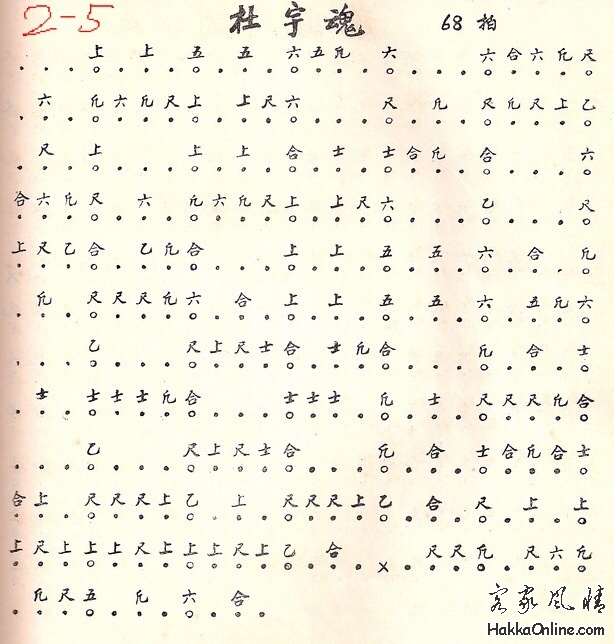 2-5 杜宇魂 68 拍
上 上 五 五 六 五 凡 六 六 合 六 凡 尺
六 凡 六 凡 尺 上 上 尺 六 尺 凡 尺 凡 尺 上 乙
尺 上 上 上 合 士 士 合 凡 合 六
合 六 凡 尺 六 凡 六 凡 尺 上 上 尺 六 乙 尺
上 尺 乙 合 乙 凡 合 上 上 五 五 六 合 凡
凡 尺 尺 尺 凡 六 合 上 上 五 五 六 五 凡 六
乙 尺 上 尺 士 合 士 凡 合 凡 合 士
士 士 士 士 凡 合 士 士 士 凡 士 尺 尺 尺 凡 合
乙 尺 上 尺 士 合 凡 合 士 合 凡 合 士
合 上 尺 尺 尺 上 乙 上 尺 尺 尺 上 乙 合 尺 上 上
上 尺 上 上 上 尺 上 上 上 尺 上 乙 合 尺 尺 凡 尺 六 凡
凡 尺 五 凡 六 合
客家风情
HakkaOnline.com